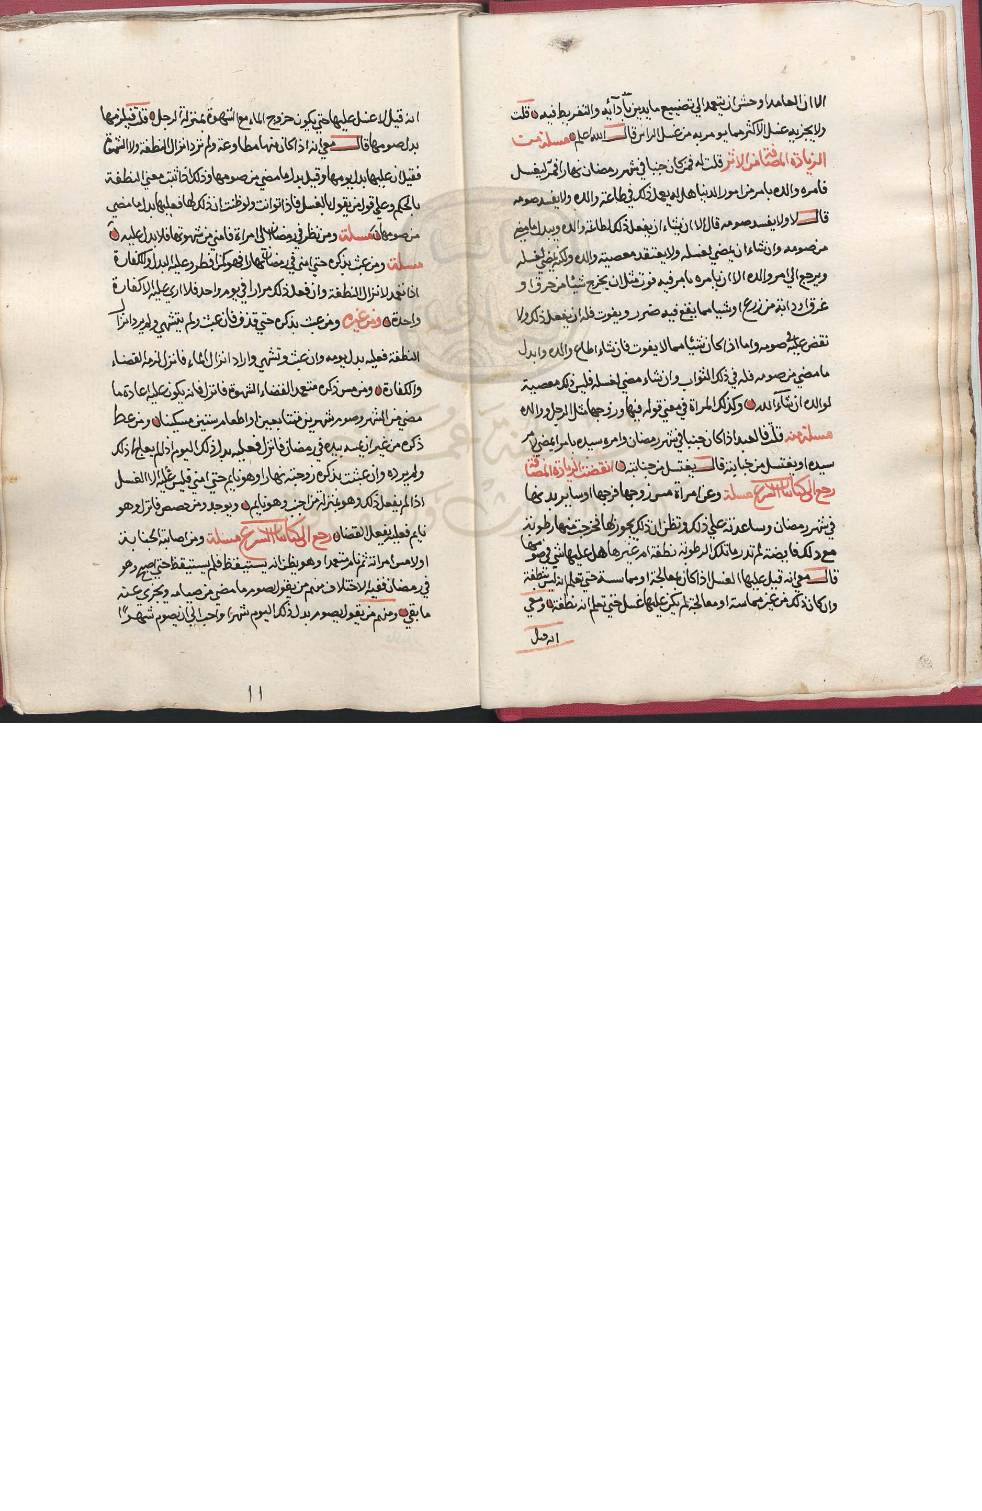 الا ان العامد او حتى ان يتعمد الى تضييع ما يدين بادائه والتفريط فيه قلت
ولا يجزيه غسل الاكثر مما يومر به من غسل الراس قال الله اعلم مسلة من
الزيادة المضافة من الاثر قلت له فمن كان جنبا في شهر رمضان نهارا فمر ليغسل
فامره والده بامر من امور الدنيا هل له يعمل ذلك في طاعة والده ولا يفسد صومه
قال لا ولا يفسد صومه قال الا ان يشاء ان يفعل ذلك لطاعة والده ويبدل ما مضى
من صومه وان شاء ان يمضي لغسله ولا يعتقد معصية والده ولكنه يمضي لغسله
ويرجع الى امر والده الا ان يامره بامر فيه فوت مثل ان يخرج شيئا من حرق او
غرق او دابة من زرع او شيا مما يقع فيه ضرر ويفوت فله ان يفعل ذلك ولا
نقض عليه في صومه واما اذا كان شيئا مما لا يفوت فان شاء اطاع والده وابدل
ما مضى من صومه فله في ذلك الثواب وان شاء مضى لغسله فليس ذلك معصية
لوالده ان شاء الله وكذلك المراة في معنى قوله فيها وزوجها مثل الرجل ووالده
مسلة منه قلت فالعبد اذا كان جنبا في شهر رمضان وامره سيده بامر ايمضي بامر
سيده او يغتسل من جنابته قال يغتسل من جنابته انقضت الزيادة المضافة
رجع الى كتاب الشرع مسلة وعن امراة مس زوجها فرجها او ساير بدنها
في شهر رمضان وساعدته على ذلك وتظن ان ذلك يجوز لها فخرجت منها رطوبة
مع ذلك فايضة لم تدر ما تلك الرطوبة نطفة ام غيرها هل عليها شي في صومها
قال معي انه قيل عليها الغسل اذا كان بمعالجة او مماسة حتى تعلم انه ليس نطفة
وان كان ذلك من غير مماسة او معالجة لم يكن عليها غسل حتى تعلم انه نطفة ومعي
انه قيل
انه قيل لا غسل عليها حتى يكون خروج الماء مع الشهوة بمنزلة الرجل قلت فيلزمها
بدل صومها قال معي انه اذا كان منها مطاوعة ولم ترد انزال النطفة ولا الشهوة
فقيل ان عليها بدل يومها وقيل بدل ما مضى من صومها وذلك اذا ثبت معنى النطفة
بالحكم وعلى قول من يقول بالغسل فاذا توانت ولو ظنت ان ذلك لها فعليها بدل ما مضى
من صومها مسلة ومن نظر في رمضان الى امراة فامنى من شهوتها فلا بدل عليه
مسلة ومن عبث بذكره حتى امنى في رمضان نهارا فهو كمن افطر وعليه البدل والكفارة
اذا تعمد لانزال النطفة وان فعل ذلك مرارا في يوم واحد فلا ارى عليه الا كفارة
واحدة ومن غيره ومن عبث بذكره حتى قذف فان عبث ولم يشتهي ولم يرد انزال
النطفة فعليه بدل يومه وان عبث وتشهى واراد انزال الماء فانزل لزمه القضاء
والكفارة ومن مس ذكره متعمدا لقضاء الشهوة فانزل فانه يكون عليه اعادة ما
مضى من الشهر وصوم شهرين متتابعين او اطعام ستين مسكينا ومن غط
ذكره من غير ان يمسه بيده في رمضان فانزل فعليه بدل ذلك اليوم اذا لم يعالج ذلك
ولم يرده وان عبثت بذكره زوجته نهارا وهو نايم حتى امنى فليس عليه الا الغسل
اذا لم يفعل ذلك وهو بمنزلة من اجنب وهو نايم ويوجد ومن خصخص فانزل وهو
نايم فعليه يفعل القضا رجع الى كتاب الشرع مسلة ومن اصابته الجنابة
او لامس امراته ثم نام متعمدا وهو يظن انه يستيقظ فلم يستيقظ حتى اصبح وهو
في رمضان ففيه الاختلاف منهم من يقول يصوم ما مضى من صيامه ويجزى عنه
ما بقي ومنهم من يقول يصوم بدل ذلك اليوم شهرا واحب الي ان يصوم شهرا
١١